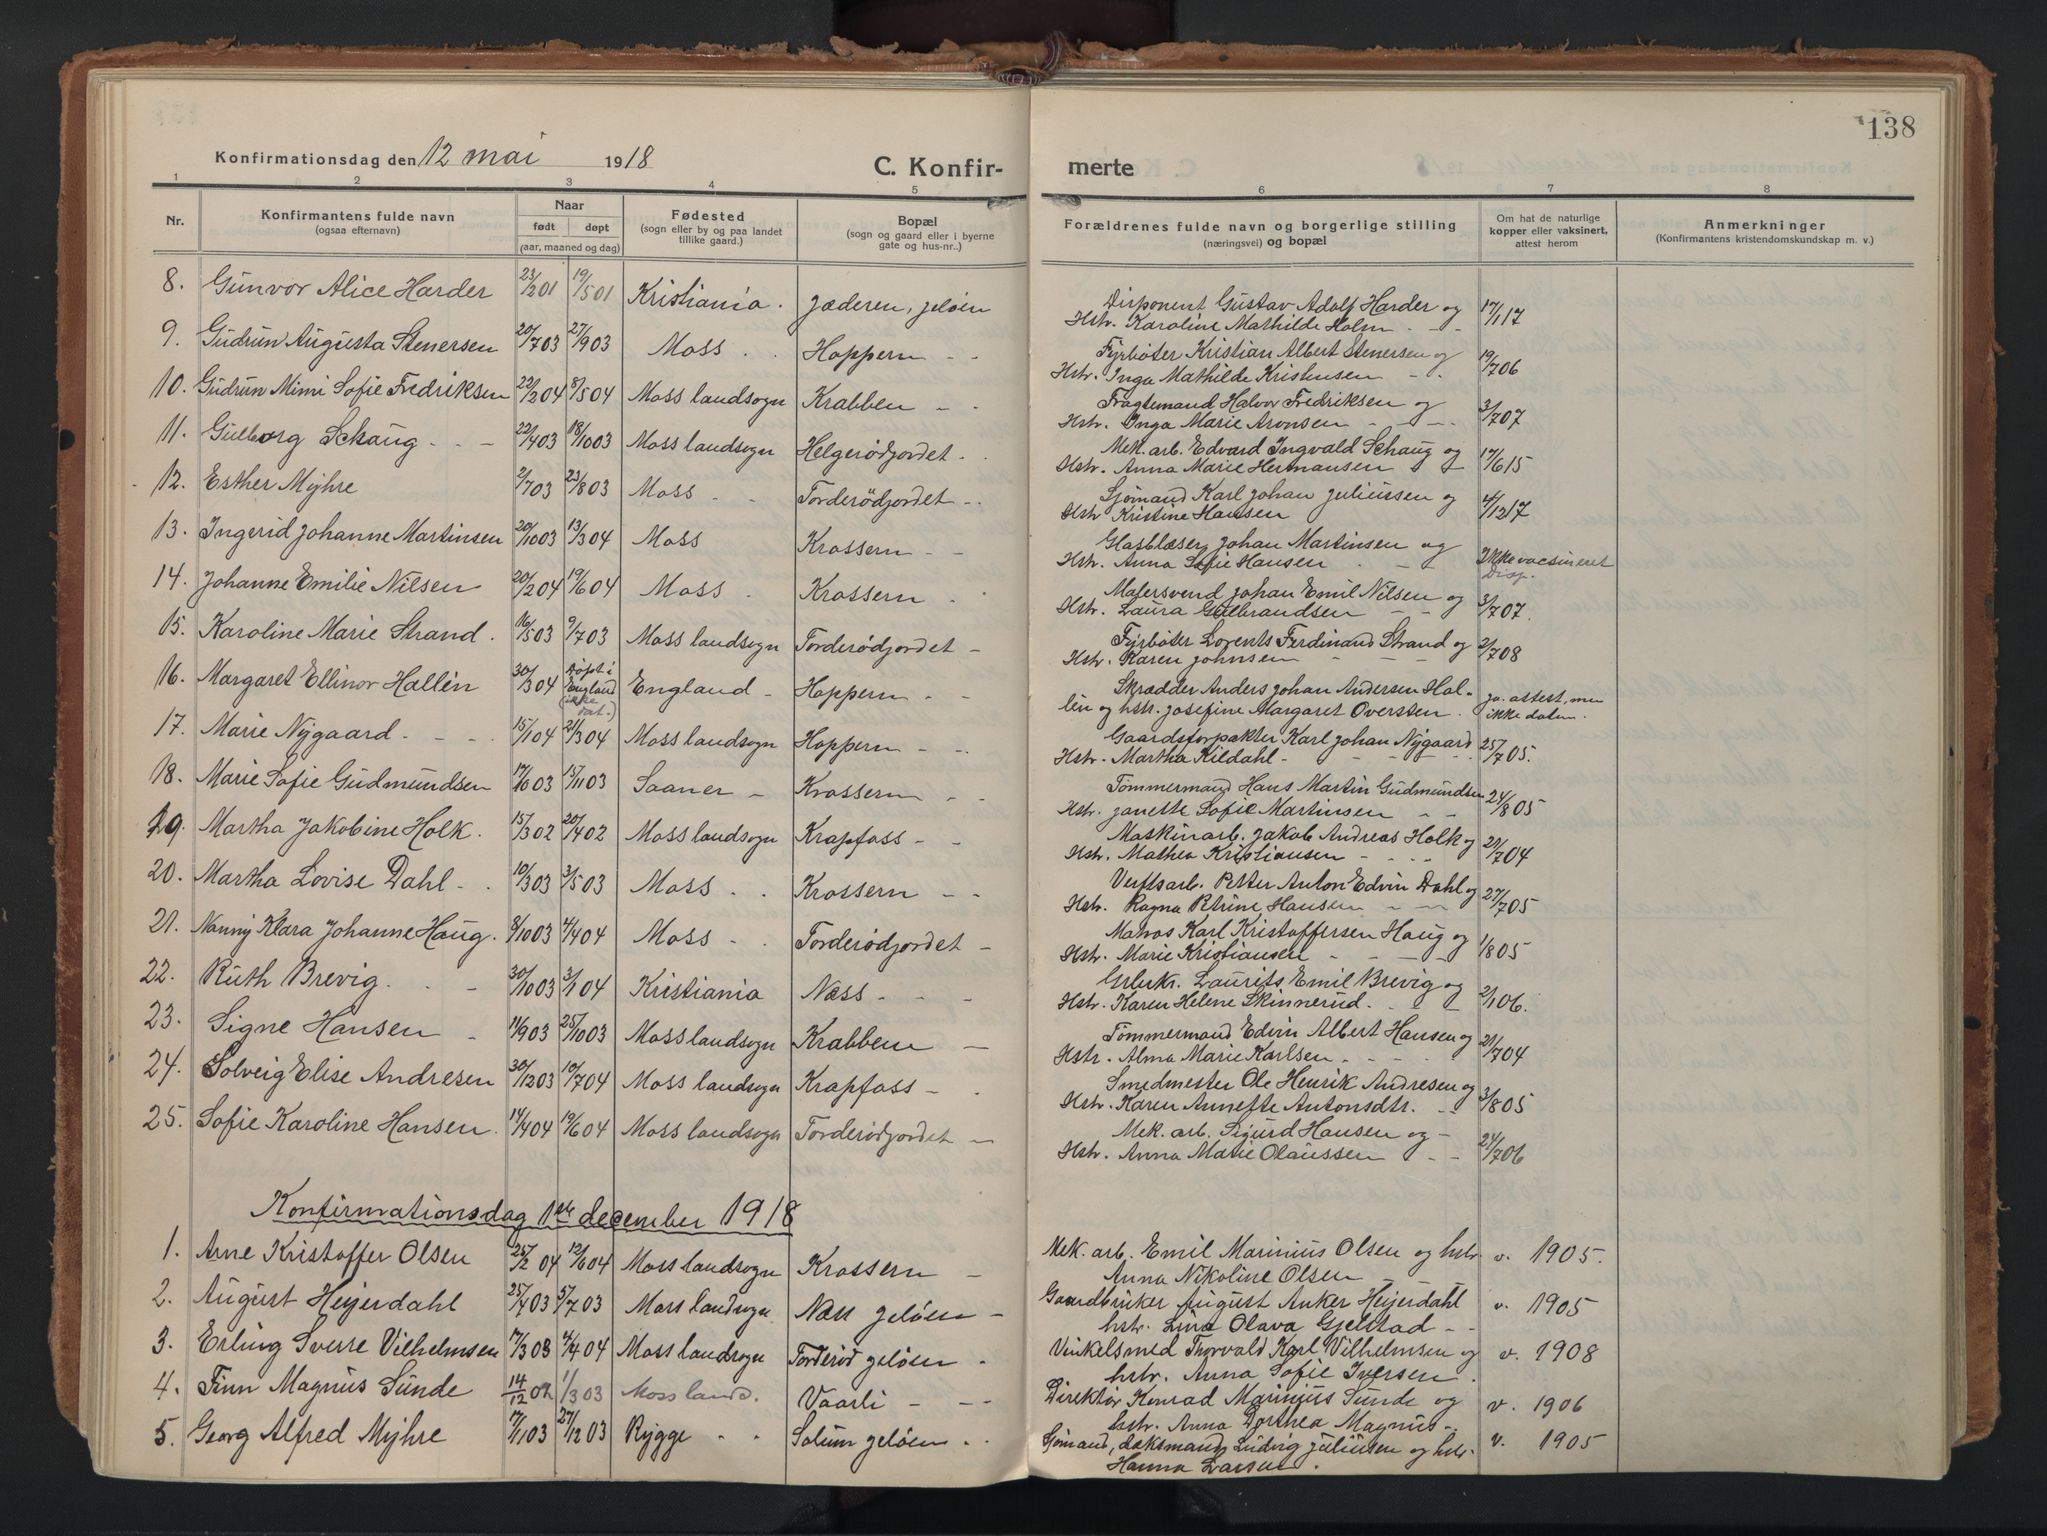 138
Konfirmationsdag den 12 mai 1918
C. Konfir-
merte
1 2 3 4 5 6 7 8
Nr.
Konfirmantens fulde navn
(ogsaa efternavn)
Naar
født døpt
(aar, maaned og dag)
Fødested
(sogn eller by og paa landet
tillike gaard.)
Bopæl
(sogn og gaard eller i byerne
gate og hus-nr.)
Forældrenes fulde navn og borgerlige stilling
(næringsvei) og bopæl
Om hat de naturlige
kopper eller vaksinert,
attest herom
Anmerkninger
(Konfirmantens kristendomskundskap m. v.)
8. Gunvor Alice Harder 23/2 01 19/5 01 Kristiania. Jæderen, jeløin Disponent Gustav Adolf Harder og 17/1 17
Hstr. Karoline Mathilde Holm
9. Gudrun Augusta Stenersen 20/7 03 27/9 03 Moss Hoppern Fyrbøter Kristian Albert Stenersen og 19/7 06
Hstr. Inga Mathilde Kristensen
10. Gudrun Mimi Sofie Fredriksen 22/2 04 8/5 04 Moss landsogn Krabben Fragtemand Halvor Fredriksen og 3/7 07
Hstr. Inga Marie Aronsen
11. Gulborg Schaug 22/4 03 18/10 03 Moss landsogn Helgerødjordet Mek. arb. Edvard Ingvald Schaug og 17/6 15
Hstr. Anna Marie Hermansen
12. Esther Myhre 2/7 03 23/8 03 Moss Torderødjordet Sjømand Karl Johan Juliussen og 4/12 17
Hstr Kristine Hansen
13. Ingerid Johanne Martinsen 20/10 03 13/3 04 Moss Krossern Glasblæser Johan Martinsen og Ikke vacsineret
Hstr. Anna Sofie Hansen Disp.
14. Johanne Emilie Nilsen 20/2 04 19/6 04 Moss Krossern Malersvend Johan Emil Nilsen og 3/7 07
Hstr. Laura Gulbrandsen
15. Karoline Marie Strand. 16/5 03 9/7 03 Moss landsogn Torderødjordet Fyrbøter Lorents Ferdinand Strand og 2/7 08
Hstr. Karen Johnsen
16. Margaret Ellinor Hallén 30/3 04 Døpt i England (ikke dat.) England Hoppern Skrædder Anders Johan Andersen Hal- ja. attest, men
lén og hstr. Josefine Margaret Oversten. ikke datum.
17. Marie Nygaard 15/1 04 21/3 04 Moss landsogn Hoppern Gaardsforpakter Karl Johan Nygaard 25/7 05.
Hstr. Martha Kildahl
18. Marie Sofie Gudmundsen 17/6 03 15/11 03 Saaner Krossern Tømmermand Hans Martin Gudmundsen 24/8 05
Hstr. Janette Sofie Martinsen
19. Martha Jakobine Holk. 15/3 02 20/4 02 Moss landsogn Krapfoss Maskinarb. Jakob Andreas Holk og 29/7 04
Hstr. Mathea Kristiansen
20. Martha Lovise Dahl 10/3 03 3/5 03 Moss Krossern Verftsarb. Petter Anton Edvin Dahl og 27/7 05
Hstr. Ragna Petrine Hansen
21. Nanny Klara Johanne Haug. 8/10 03 4/4 04 Moss Torderødjordet Matros Karl Kristoffersen Haug og 1/8 05
Hstr. Marie Kristiansen
22. Ruth Brevig. 30/10 03 3/1 04 Kristiania Næss Laurits Emil Brevig og 2/1 06.
Hstr. Karen Helene Skinnerud.
23. Signe Hansen 11/9 03 25/10 03 Moss landsogn Krabben Tømmermand Edvin Albert Hansen og 21/7 04
Hstr. Alma Marie Karlsen
24. Solveig Elise Andresen 30/12 03 10/7 04 Moss landsogn Krapfoss Smedmester Ole Henrik Andresen og 3/8 05
Hstr. Karen Annette Antonsdtr.
25. Sofie Karoline Hansen. 14/4 04 19/6 04 Moss landsogn Torderødjordet Mek. arb. Sigurd Hansen og 24/7 06
Hstr. Anna Marie Olaussen
Konfirmationsdag 1ste december 1918
1. Arne Kristoffer Olsen 25/2 04 12/6 04 Moss landsogn Krossern Mek. arb. Emil Marinius Olsen og hstr v. 1905.
Anna Nikoline Olsen
2. August Heyerdahl 25/4 03 5/7 03 Moss landsogn. Næss jeløen Gaardbruker August Anker Heyerdahl v. 1905
hstr. Lina Olava Gjelstad
3. Erling Sverre Vilhelmsen 17/3 03 4/4 04 Moss landsogn Torderød jeløen Vinkelsmed Thorvald Karl Vilhelmsen og v. 1908
hstr. Anna Sofie Iversen.
4. Finn Magnus Sunde 14/12 02 1/3 03 Moss lands. Vaarli Direktør Konrad Marinius Sunde og v. 1906
hstr. Anna Dorthea Magnus
5. Georg Alfred Myhre 17/1 03 27/12 03 Rygge Solum jeløen Sjømand, dæksmand Ludvig Juliussen og hstr. v. 1905
Hanna Larsen.